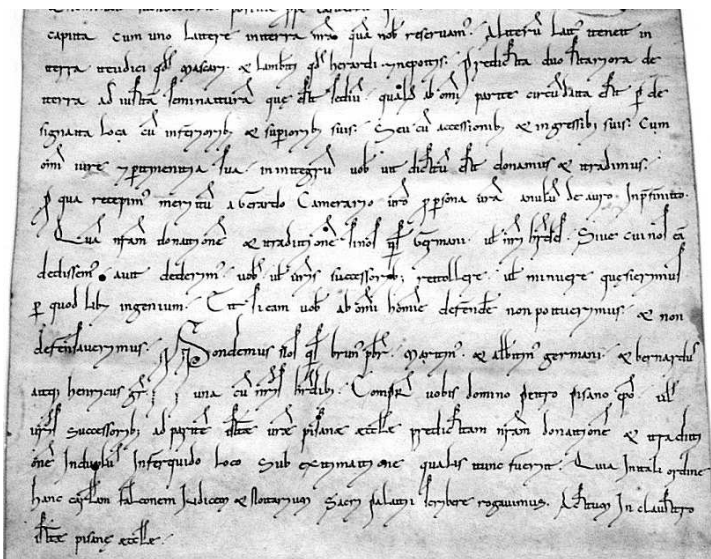 capita cum uno latere in terra nrā quā nob reservam᷒. Alterū lat᷒ tenet in
terra teudici qd Mascari. & lamb̄ti qd herardi. 7 nepotis. Predicta duo stariora de
terra ad iustā seminaturā que est sediū. qualit ab omī parte circūdata est p de
signata loca cū inferiorib; & superiorib; suis. Seu cū accessionib; & ingressib; suis. Cum
omī iure 7 ptinentia sua. in integrū vob ut dictū est donamus & tradimus.
p qua recepim᷒ meritū a Gerardo Camerario vrō p persona vrā anulū de auro. In pfinito.
Quā nrām donationē & traditionē si nos germani. ul nrī hrdes. Sive cui nos eā
dedissem᷒. aut dederim᷒. vob. ul vrīs successorib; retollere. ul minuere quesierimus
p quod lib; ingenium. Et si eam vob ab omī homīe defendere non potuerimus. & non
defensaverimus. Spondemus nos brun pbr. Martin᷒. & albitin᷒ germani. & bernardus
atq; henricus gr̄ī una cū nrīs hrdib; Componere vobis domino petro pisano epō ul
vrīs successorib; ad partē istae vrae pisanae aeccle predictam nrām donationē & traditi
onē In duplū In ferquido loco Sub extimatione qualis tunc fuerit. Quia In tali ordine
hanc cartulam falconem Iudicem & Notarium Sacri palatii scribere rogavimus. Actum In claustro
istae pisanę aeccle.